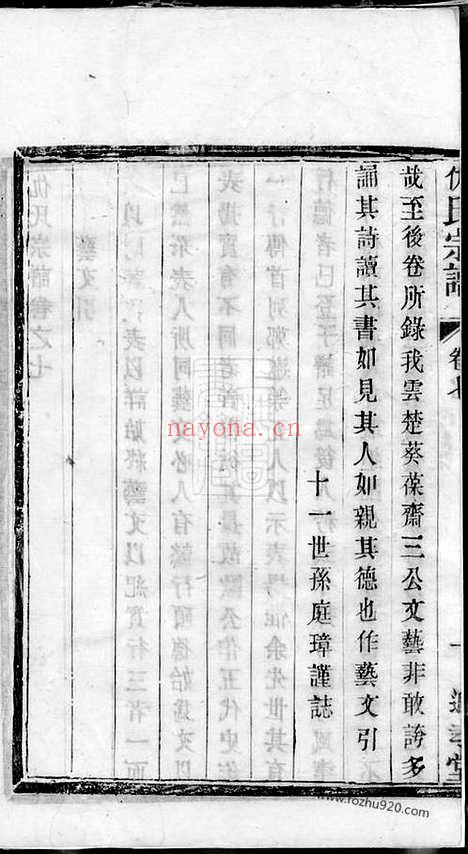 氏宗譜 卷七 一
哉至後卷所錄我雲楚葵葆齋三公文藝非敢誇多
誦其詩讀其書如見其人如親其德也作藝文引
十一世孫庭璋謹誌
nayona.cn
www.rozhu920.com